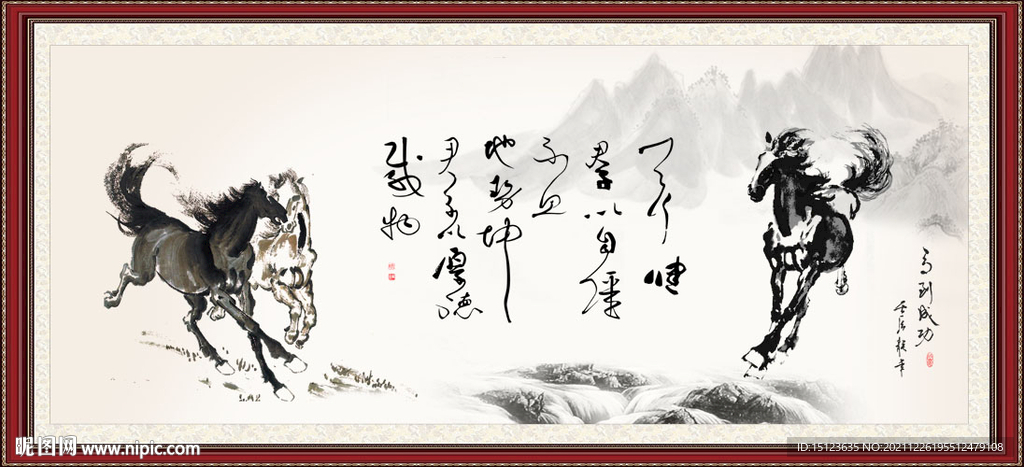 天行健
君子以自强
不息
地势坤
君子以厚德
载物
马到成功
昵图网 www.nipic.com
ID:15123635 NO:20211226195512479108